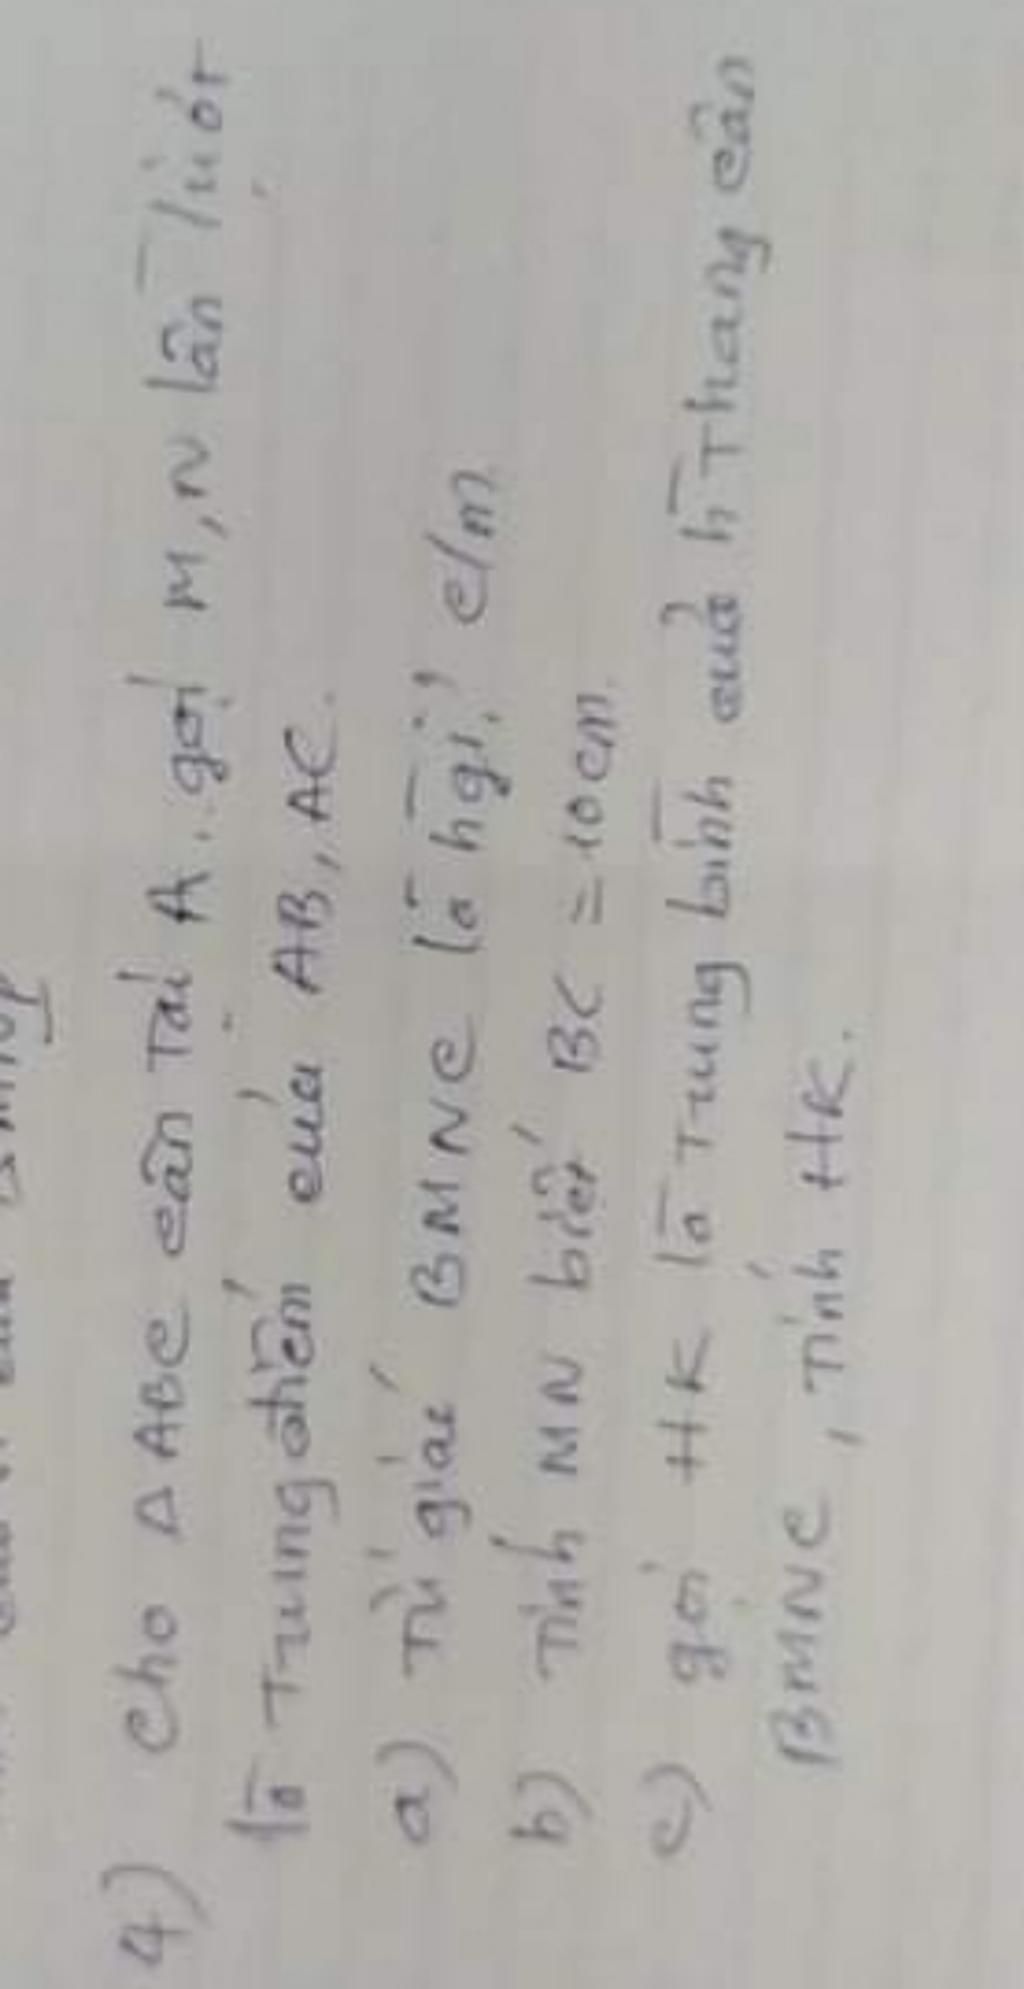 4) Cho Δ ABC cân tại A. gọi M, N lần lượt
là Trung điểm của AB, AC.
a) Tứ giác BMNC là h̄ gì? c/m
b) Tính MN biết BC = 10 cm.
c) gọi HK là Trung bình của h̄ Thang cân
BMNC, Tính HK.